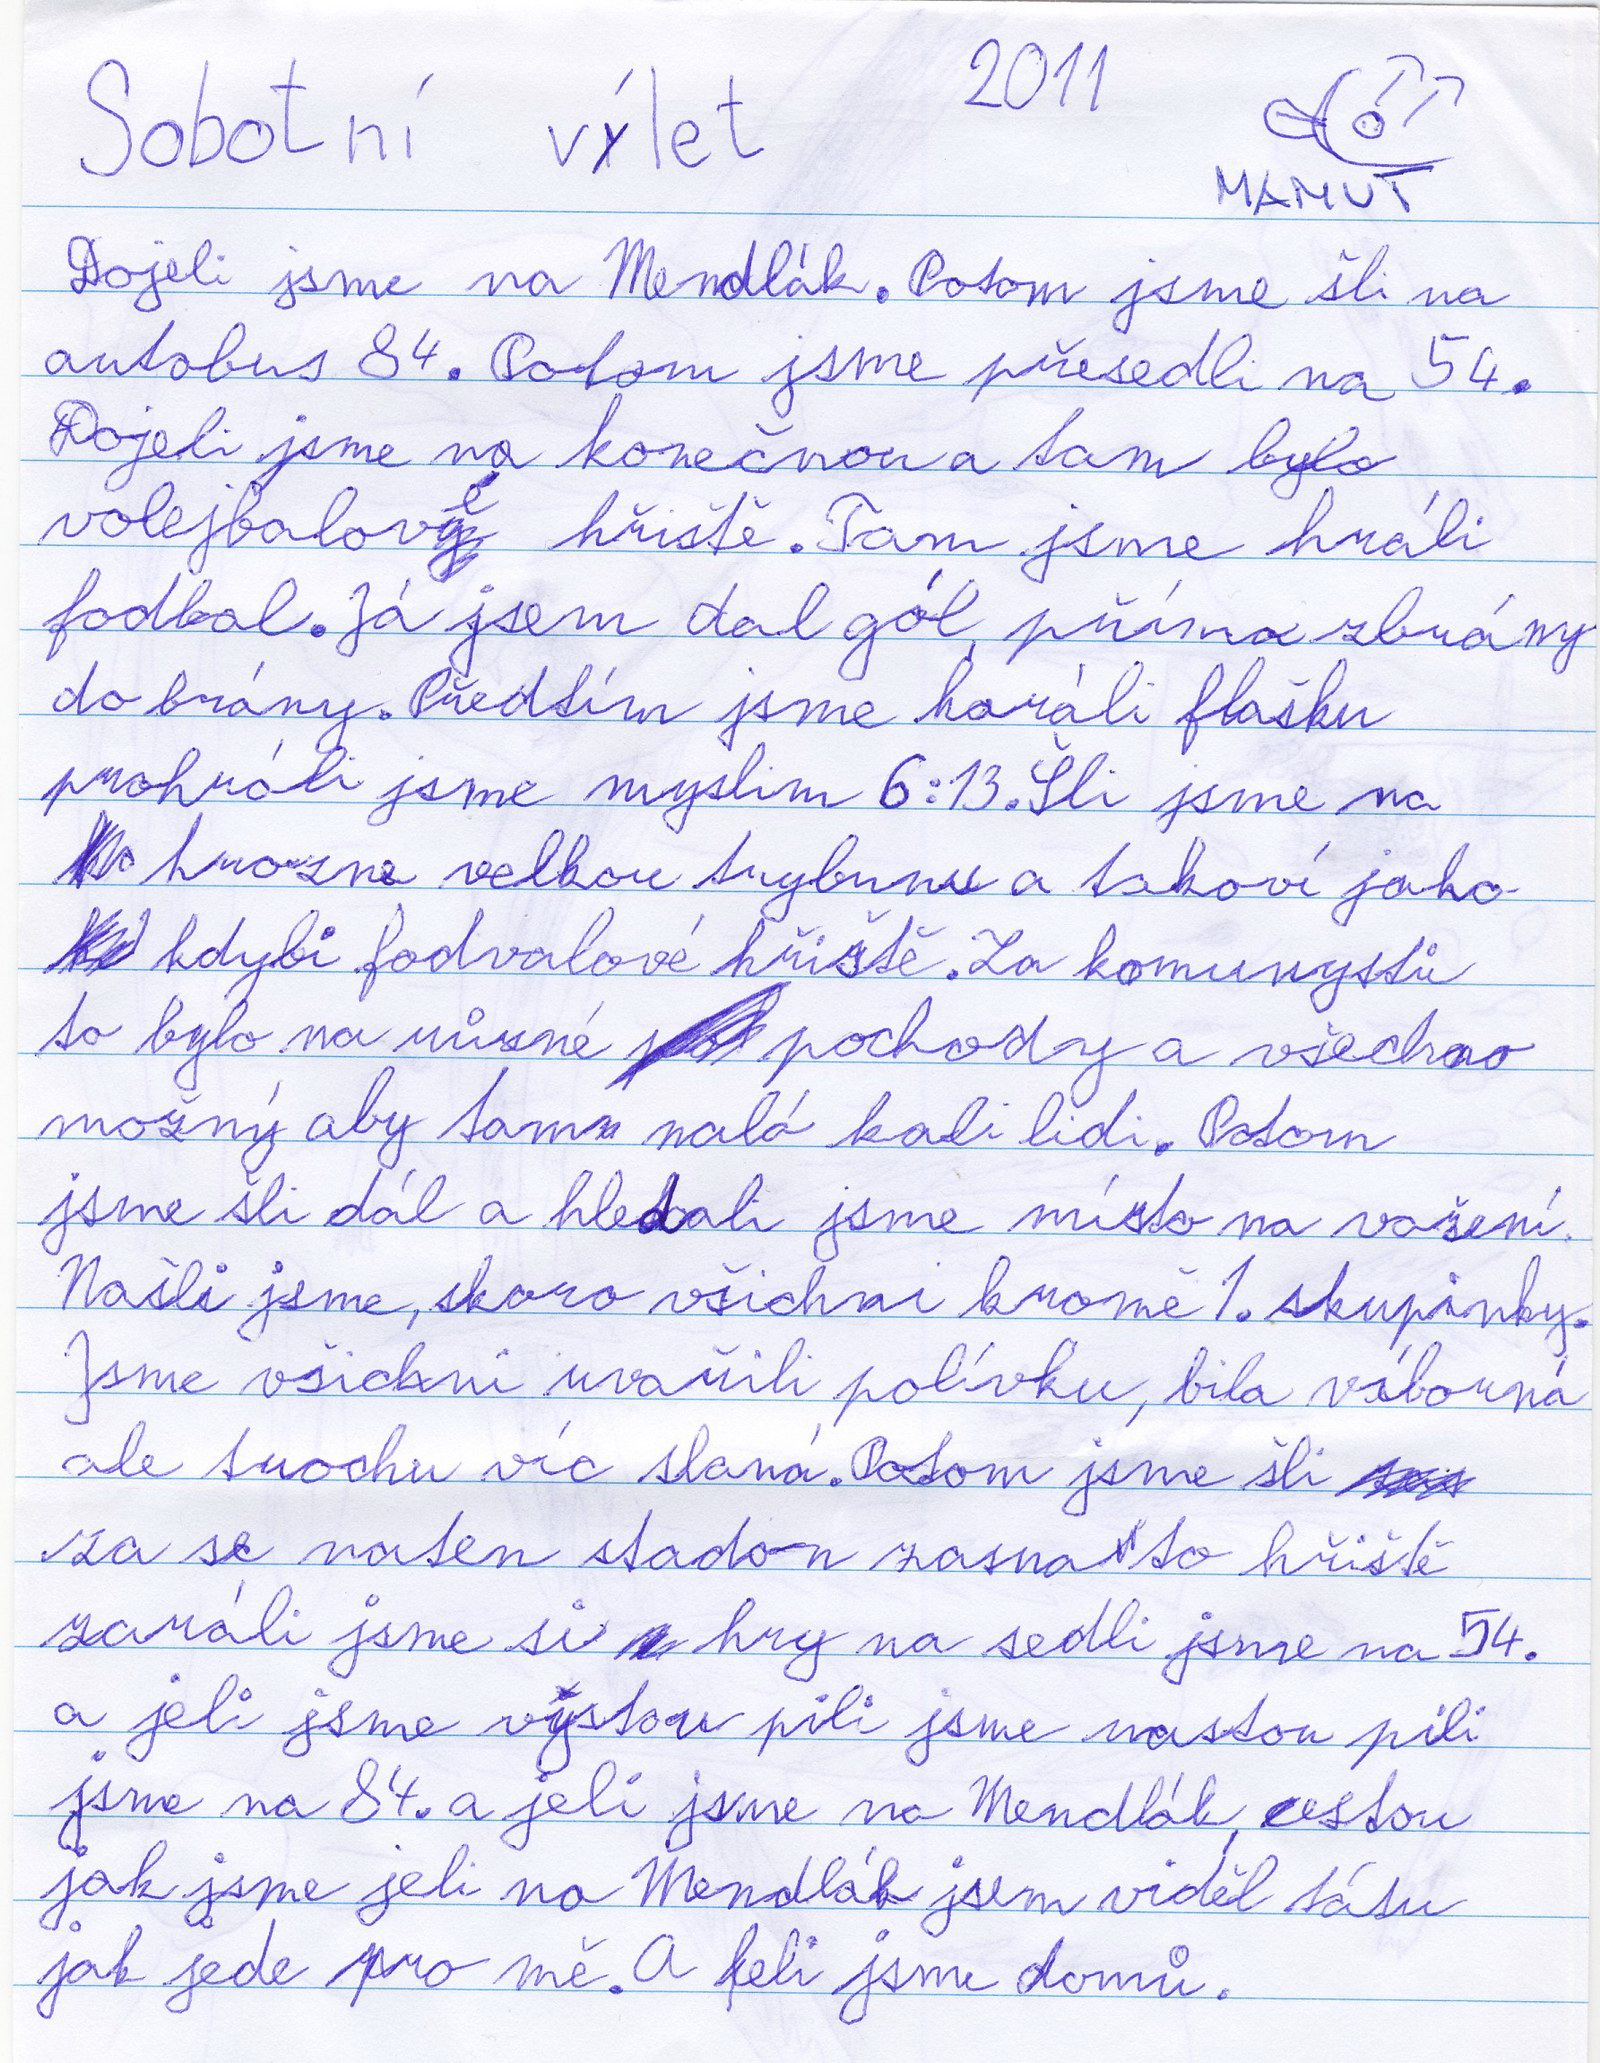 Sobotní výlet 2011
MAMUT
Dojeli jsme na Mendlák. Potom jsme šli na
autobus 84. Potom jsme přesedli na 54.
Dojeli jsme na konečnou a tam bylo
volejbalové hřiště. Tam jsme hráli
fodbal. Já jsem dal gól, příma zbrány
do brány. Předtím jsme haráli flašku
prohráli jsme myslim 6:13. Šli jsme na
hrozne velkou trybunu a takoví jako
kdybi fodvalové hřiště. Za komunystů
to bylo na různé pochody a všechno
možný aby tam nalá kali lidi. Potom
jsme šli dál a hledali jsme místo na vaření.
Našli jsme, skoro všichni kromě 1. skupinky.
Jsme všichni uvařili polívku, bila víborná
ale trochu víc slaná. Potom jsme šli
za se naten stadon zasna to hřiště
zaráli jsme si hry na sedli jsme na 54.
a jeli jsme výstou pili jsme nastou pili
jsme na 84. a jeli jsme na Mendlák, cestou
jak jsme jeli na Mendlák jsem viděl tátu
jak jede pro mě. A jeli jsme domů.